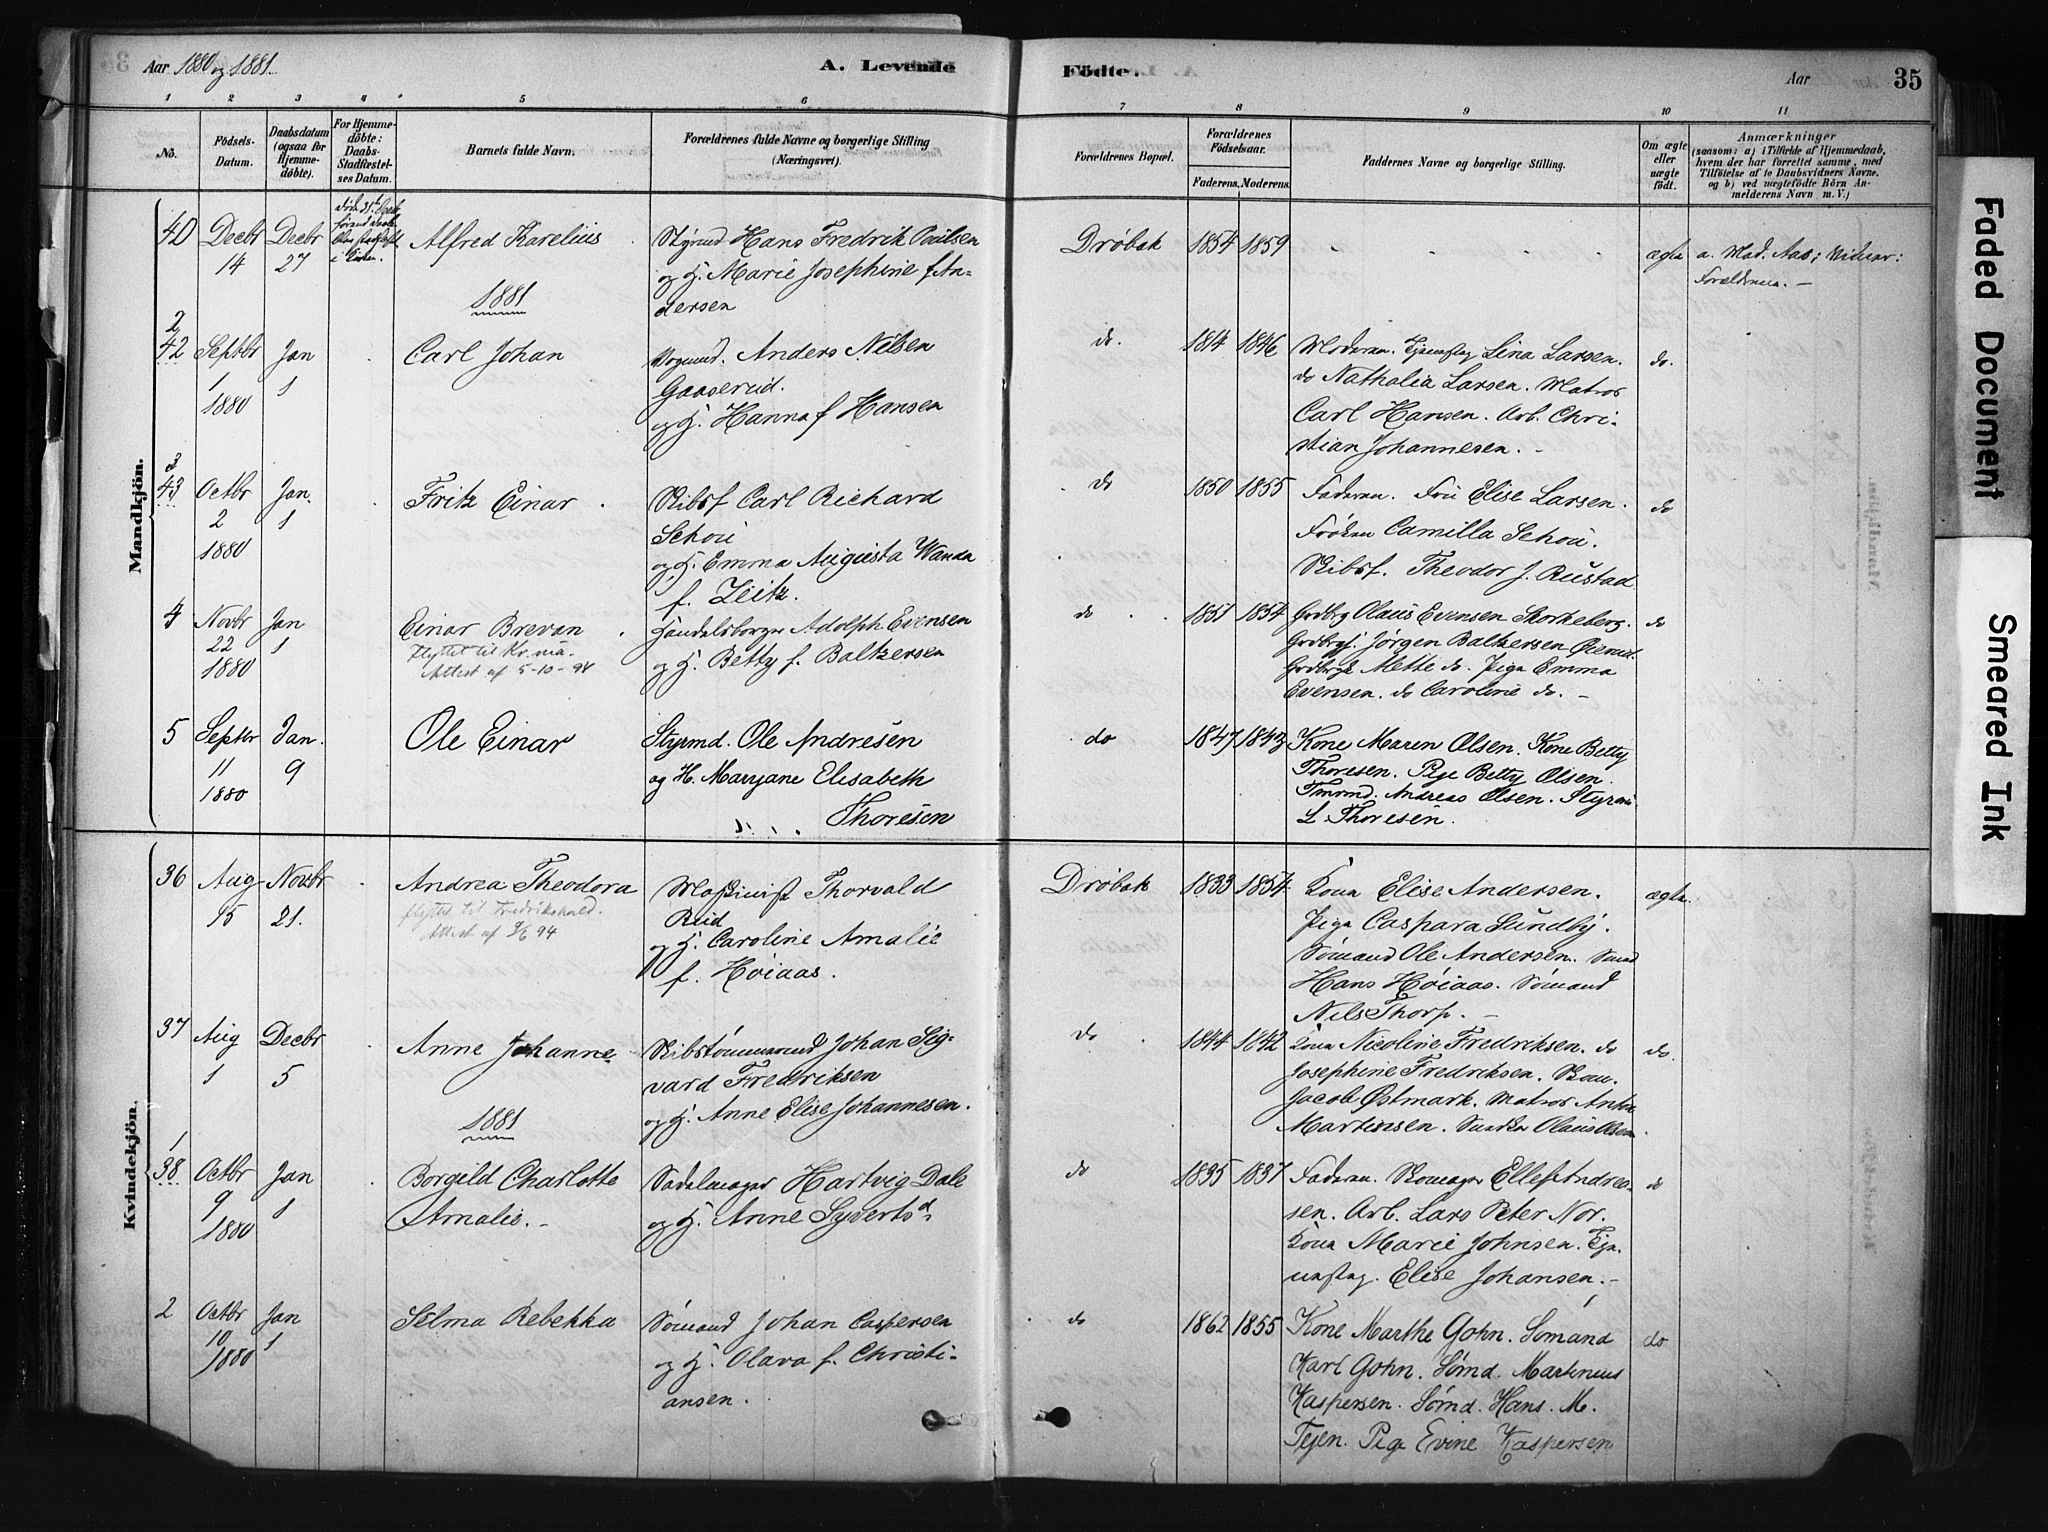 Aar 1880 og 1881.
A. Levende Födte.
Aar
35
1 2 3 4 5 6 7 8 9 10 11
No.
Födsels-Datum.
Daabsdatum (ogsaa for Hjemmedöbte).
For Hjemmedöbte: Daabs-Stadfæstelses Datum.
Barnets fulde Navn.
Forældrenes fulde Navne og borgerlige Stilling (Næringsvei).
Forældrenes Bopæl.
Forældrenes Födselsaar.
Faderens. Moderens.
Faddernes Navne og borgerlige Stilling.
Om ægte eller uægte födt.
Anmærkninger
(saasom: a) i Tilfælde af Hjemmedaab, hvem der har forrettet samme, med Tilföielse af to Daabsvidners Navne, og b) ved uægtefödte Börn Anmelderens Navn m. V.)
Mandkjön.
40 Decbr 14 Decbr 27
Alfred Karelius
Styrmd Hans Fredrik Poulsen
og H. Marie Josephine f. An-
dersen
Drøbak 1854 1859
ægte
a. Mad. Aas; Vidner:
Forældrene. –
1881
2
42 Septbr 1 1880 Jan 1
Carl Johan
Anders Nilsen
Gaaserud.
og H. Hanna f Hansen
do. 1814 1846
Moderen. Tjenestpg Lina Larsen.
do Nathalia Larsen. Matros
Carl Hansen. Arb. Chri-
stian Johannesen. –
do.
3
43 Octbr 2 1880 Jan. 1
Fritz Einar
Skibsf Carl Richard
Schou
og H. Emma Augusta Wanda
f. Zeitz.
do 1850 1855
Faderen. Fru Elise Larsen.
Frøken Camilla Schou.
Skibsf. Theodor J. Rustad
do
4 Novbr 22 1880 Jan 1
Einar Brevan
flyttet til Kr.nia.
Attest af 5-10-94
Handelsborger Adolph Evensen
og H. Betty f. Baltzersen
do 1851 1854
Grdbrg Olaus Evensen Storkeberg.
Jørgen Baltzersen
Mette do. Pige Emma
Evensen. do Caroline do. –
do
5 Septbr 11 1880 Jan. 9
Ole Einar
Styrmd. Ole Andresen
og H. Maryane Elisabeth
Thoresen
do 1847 1843
Kone Maren Olsen. Kone Betty
Thoresen. Pige Betty Olsen.
Tmrmd. Andreas Olsen. Styrm
L. Thoresen.
Kvindekjön.
36 Aug 15 Novbr 21.
Andrea Theodora
flyttet til Fredrikshald.
Attest af 94
Maskinist Thorvald
Reid
og H. Caroline Amalie
f. Høiaas.
Drøbak 1833 1854
Kone Elise Andersen.
Pige Caspara Sundby.
Sømand Ole Andersen. Sømd
Hans Høiaas. Sømand
Nils Thorp. –
ægte.
37 Aug 1 Decbr 5
Anne Johanne
Skibstømmermd Johan Sig-
vard Fredriksen
og H. Anne Elise Johannesen.
do 1844 1842
Kone Nicoline Fredriksen. do
Josephine Fredriksen.
Jacob Østmark. Matros Anton
Martinsen. Olaus Olsen
do
1881
1
38 Octbr 9 1880 Jan 1
Borgild Charlotte
Amalie. –
Sadelmager Hartvig Dale
og H. Anne Syvertsd.
do 1835 1837
Faderen. Skomager Ellef Andrea-
sen. Arb. Lars Peter Nor.
Kone Marie Johnsen. Tje-
nestpg. Elise Johansen. –
do
2 Octbr 10 1880 Jan 1
Selma Rebekka
Sømand Johan Caspersen
og H. Olava f. Christi-
ansen.
do 1862 1855
Kone Marthe Gohn. Sømand
Karl Gohn. Sømd. Martinius
Kaspersen. Sømd. Hans. M.
Tejen. Pige Evine Kaspersen
do
Faded Document
Smeared Ink